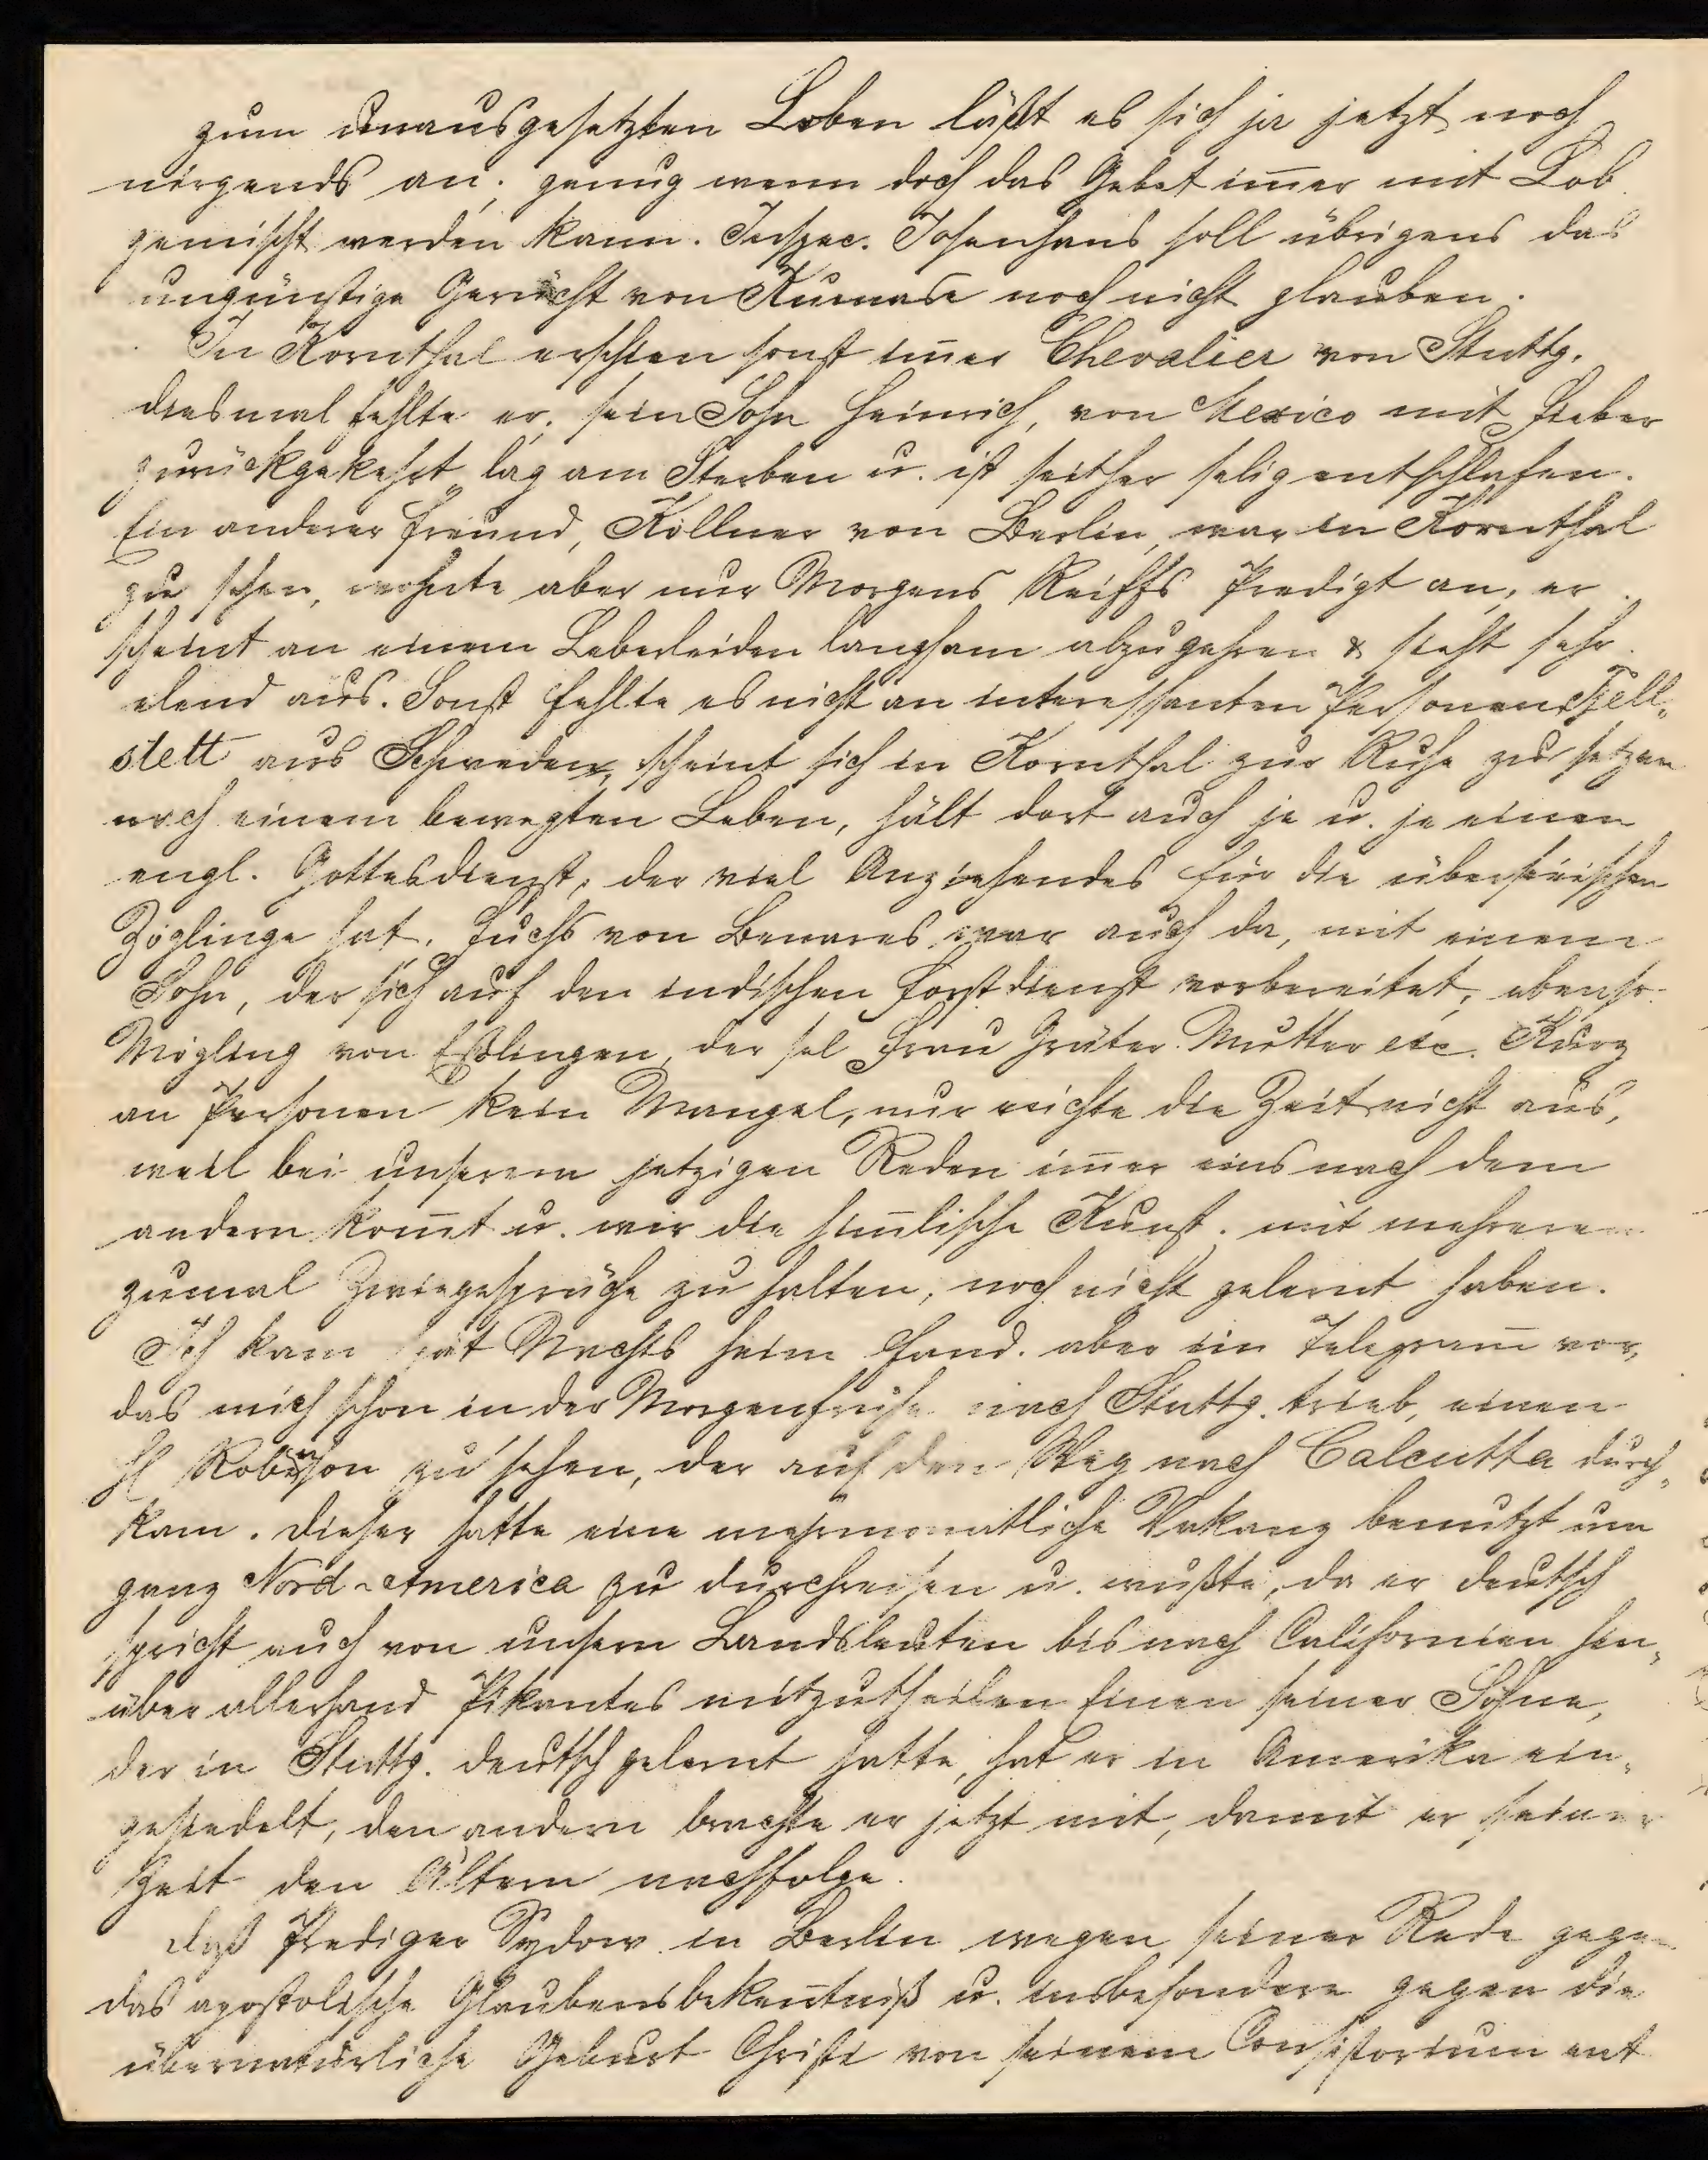 zum unausgesetzten Loben läßt es sich ja jetzt noch
nirgends an; genug wenn doch das Gebet im̅er mit Lob
gemischt werden kann. Inspec. Josenhans soll übrigens das
ungünstige Gerücht von Kumase noch nicht glauben.
In Kornthal erschien sonst im̅er Chevalier von Stuttg.
diesmal fehlte er, sein Sohn Heinrich, von Mexico mit Fieber
zurückgekehrt lag am Sterben u. ist seither selig entschlafen.
Ein anderer Freund, Köllner von Berlin, war in Kornthal
zu sehen, wohnte aber nur Morgens Reiffs Predigt an, er
scheint an einem Leberleiden langsam abzuzehren & sieht sehr
elend aus. Sonst fehlte es nicht an interessanten Personen Fjell„
stett aus Schweden, scheint sich in Kornthal zur Ruhe zu setzen
nach einem bewegten Leben, hält dort auch je u. je einen
engl. Gottesdienst, der viel Anziehendes für die überseeischen
Zöglinge hat. Fuchs von Benares war auch da, mit einem
Sohn, der sich auf den indischen Forstdienst vorbereitet, ebenso
Mögling von Eßlingen, der sel Frau Gräter Mutter etc. Kurz
an Personen kein Mangel, nur reichte die Zeit nicht aus,
weil bei unserem jetzigen Reden im̅er eins nach dem
andern kom̅t u. wir die him̅lische Kunst, mit mehreren
zumal Zwiegespräche zu halten, noch nicht gelernt haben.
Ich kam spät Nachts heim fand aber ein Telegram̅ vor,
das mich schon in der Morgenfrühe nach Stuttg. trieb, einen
H Robinson zu sehen, der auf dem Weg nach Calcutta durch„
kam. Dieser hatte eine mehrmonatliche Vakanz benutzt um
ganz Nord-America zu durchreisen u. wußte, da er deutsch
spricht auch von unsern Landsleuten bis nach Californien hin„
über allerhand Pikantes mitzutheilen Einen seiner Söhne,
der in Stuttg. deutsch gelernt hatte, hat er in Amerika ein„
gesiedelt, den andern brachte er jetzt mit, damit er seiner
Zeit dem Ältern nachfolge.
Daß Prediger Sydow in Berlin wegen seiner Rede gegen
das apostolische Glaubensbeken̅tniß u. insbesondere gegen die
übernatürliche Geburt Christi von seinem Consistorium ent